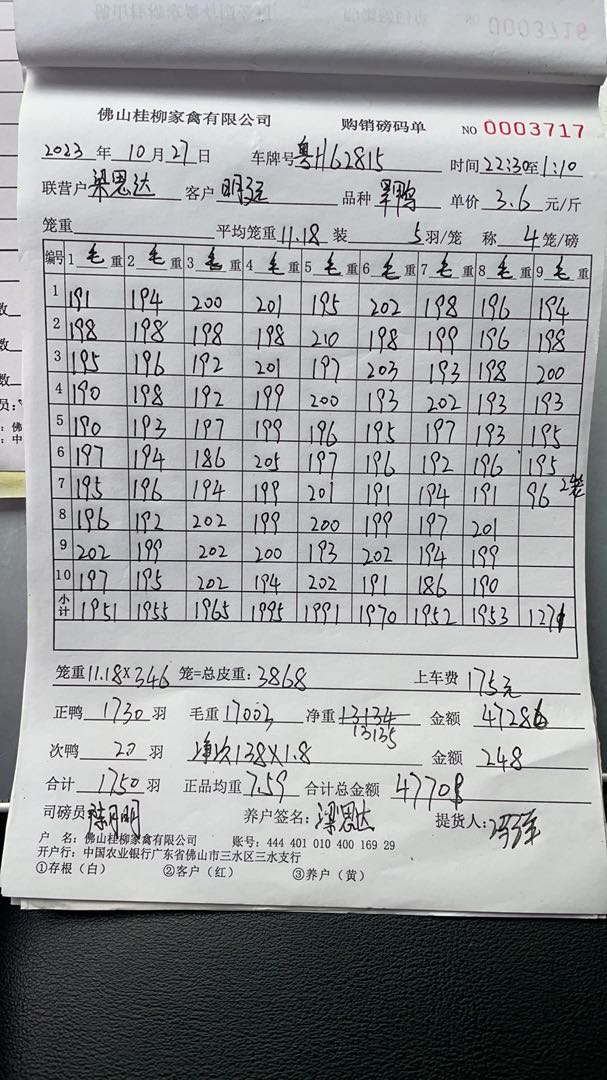 佛山桂柳家禽有限公司 购销磅码单 NO 0003717
2023 年 10 月 27 日 车牌号 粤H62815 时间 22:30至1:10
联营户 梁思达 客户 品种 单价 3.6 元/斤
笼重 平均笼重 11.18 装 5 羽/笼 称 4 笼/磅
编号 1 毛 重 2 毛 重 3 毛 重 4 毛 重 5 毛 重 6 毛 重 7 毛 重 8 毛 重 9 毛 重
1 191 194 200 201 195 202 198 196 194
2 198 198 198 198 210 198 199 196 198
3 195 196 192 201 197 203 193 198 200
4 190 198 192 199 200 193 202 193 193
5 190 193 197 199 196 195 197 193 195
6 197 194 186 205 197 196 192 196 195
7 195 196 194 199 201 191 194 191 96 2笼
8 196 192 202 199 200 199 197 201
9 202 199 202 200 193 202 194 199
10 197 195 202 194 202 191 186 190
小计 1951 1955 1965 1995 1991 1970 1952 1953 1271
笼重 11.18 X 346 笼=总皮重: 3868 上车费 175元
正鸭 1730 羽 毛重 17003 净重 13134 金额 47286
13135
次鸭 20 羽 净次138X1.8 金额 248
合计 1750 羽 正品均重 7.59 合计总金额 47708
司磅员 陈月明 养户签名: 梁思达 提货人:
户 名: 佛山桂柳家禽有限公司 账号: 444 401 010 400 169 29
开户行: 中国农业银行广东省佛山市三水区三水支行
①存根（白） ②客户（红） ③养户（黄）